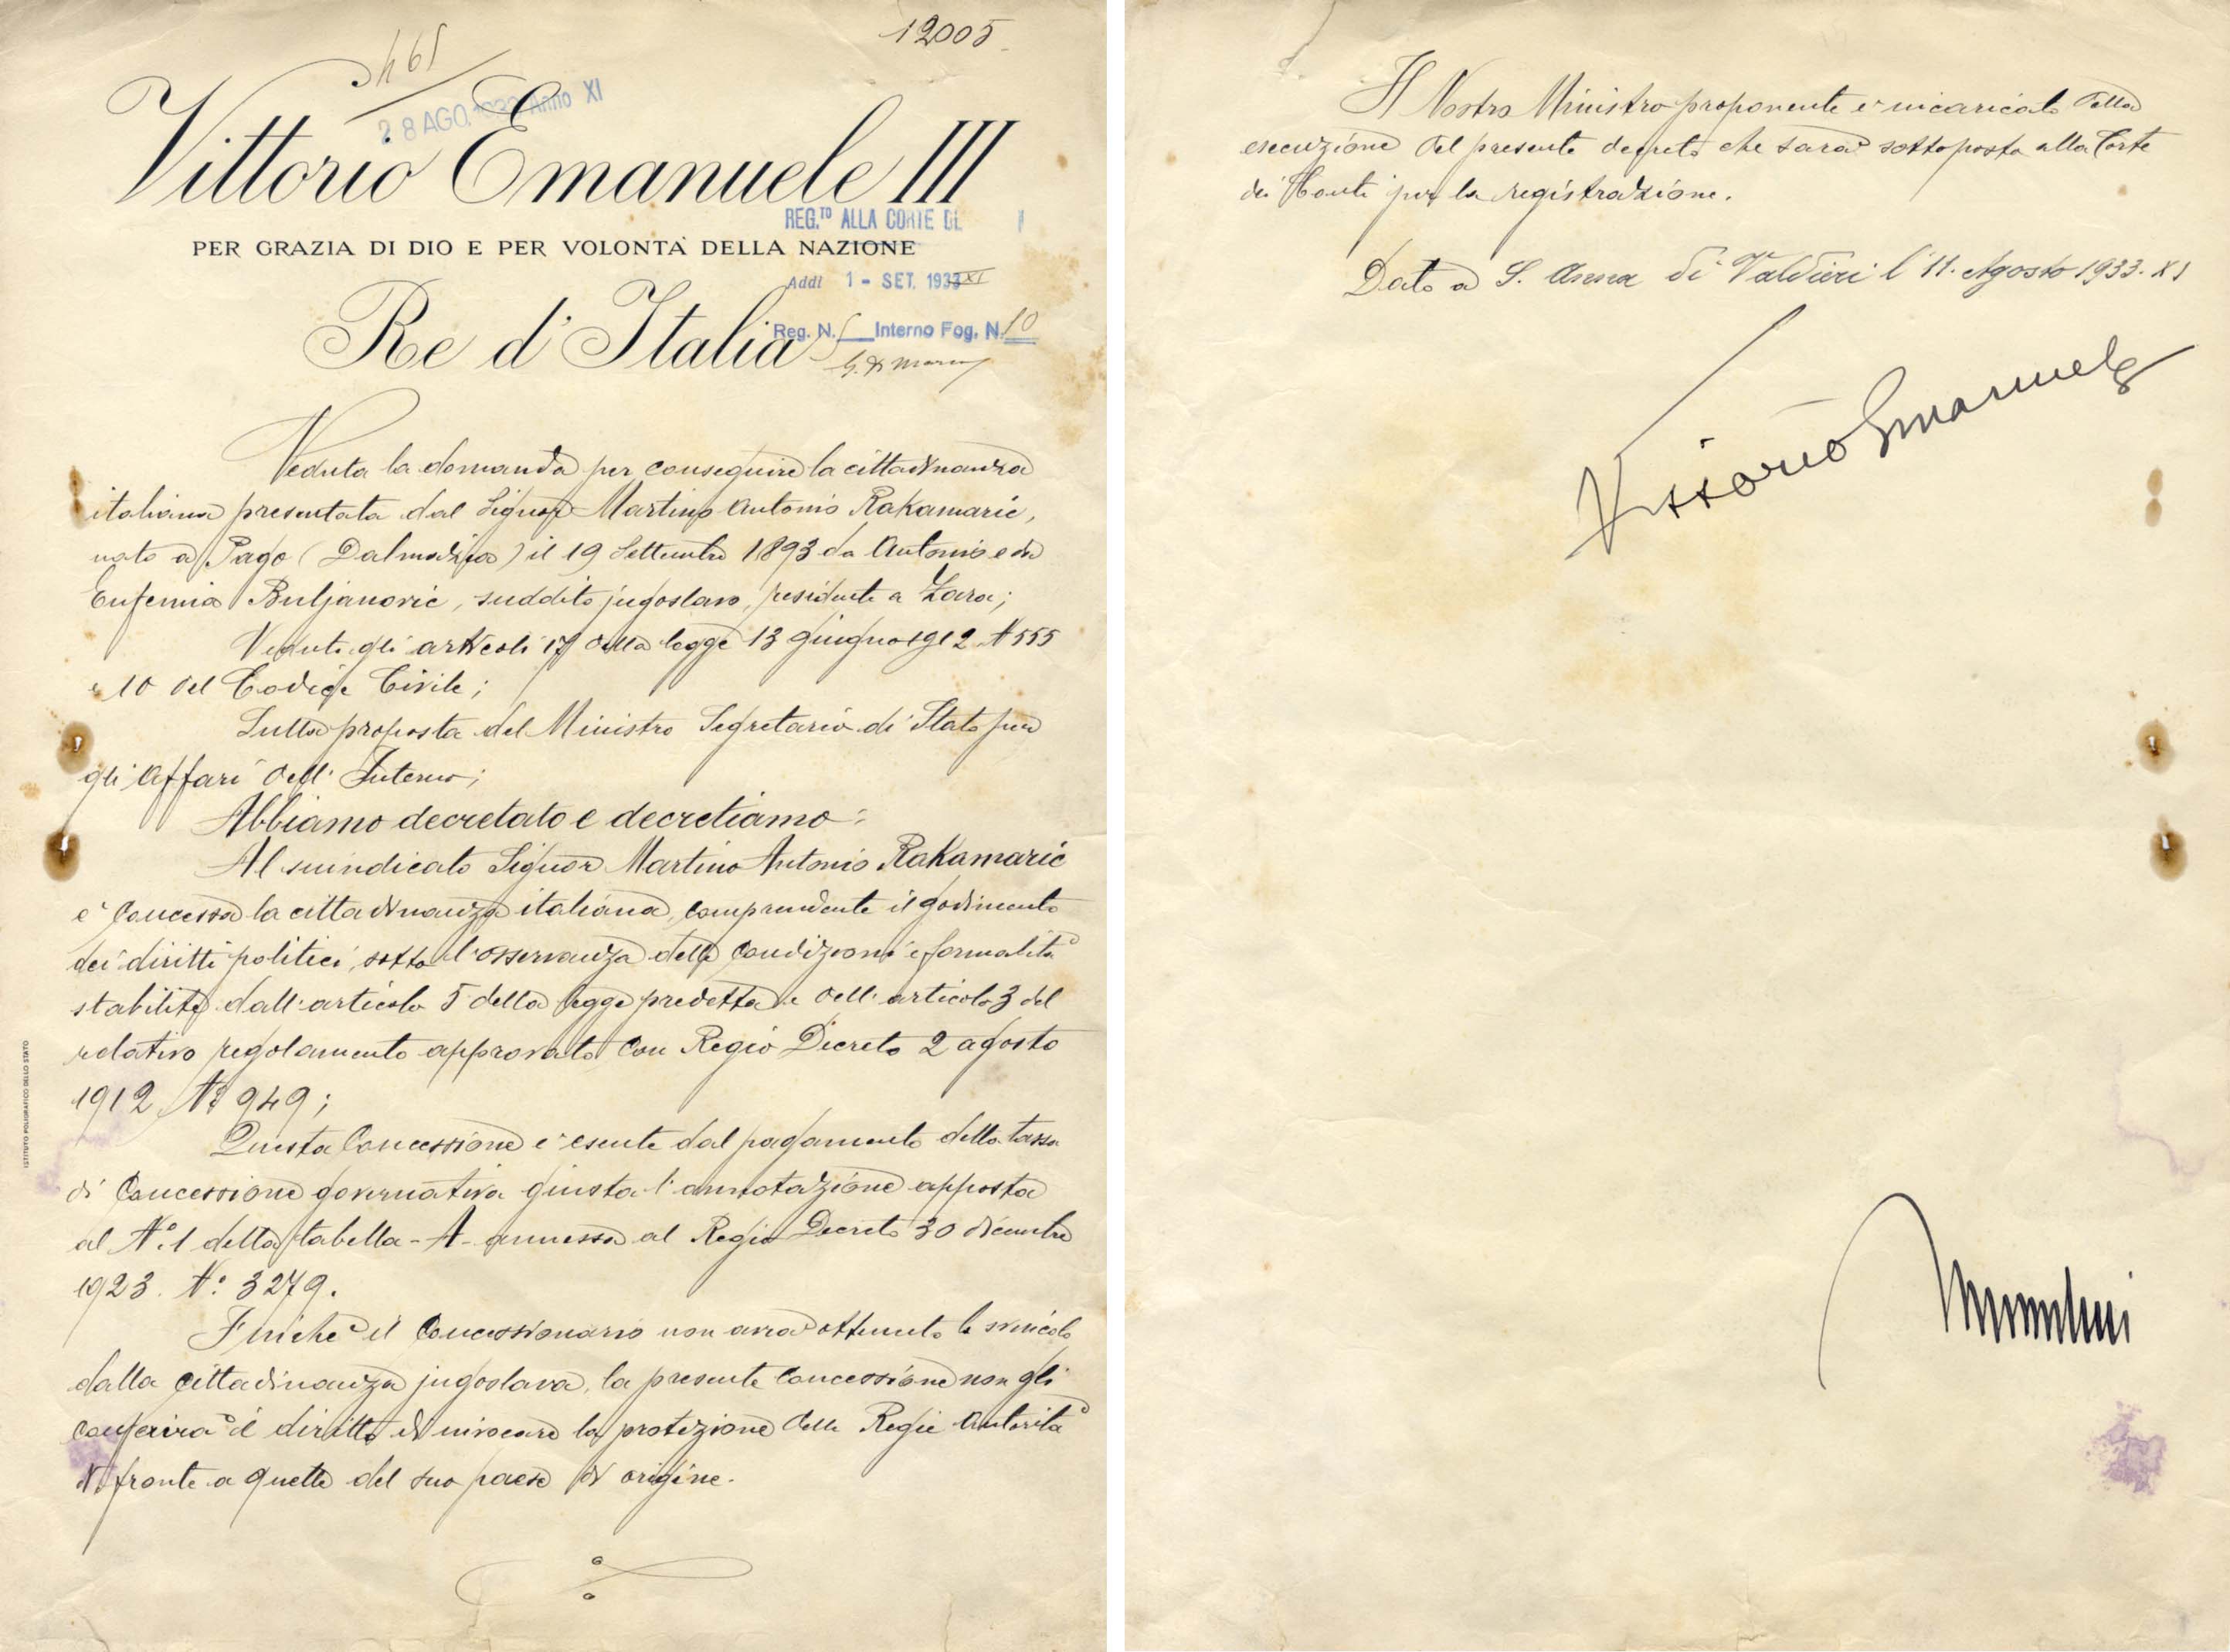 12005
28 AGO. 1933 Anno XI
Vittorio Emanuele III
REG.TO ALLA CORTE DE
PER GRAZIA DI DIO E PER VOLONTÀ DELLA NAZIONE
Addì 1 - SET. 1933 XI
Re d'Italia
Reg. N. Interno Fog. N. 10
Veduta la domanda per conseguire la cittadinanza
italiana presentata dal Signor Martino Antonio Rakamarić,
nato a Pago (Dalmazia) il 19 Settembre 1893 da Antonio e da
Eufemia Buljanovic, suddito jugoslavo, residente a Zara;
Veduti gli articoli della legge 13 giugno 1912 N 555
e 10 del Codice Civile;
Sulla proposta del Ministro Segretario di Stato per
gli Affari dell'Interno;
Abbiamo decretato e decretiamo:
Al suindicato Signor Martino Antonio Rakamarić
è concessa la cittadinanza italiana, comprendente il godimento
dei diritti politici, sotto l'osservanza delle condizioni e formalità
stabilite dall'articolo 5 della legge predetta e dell'articolo 3 del
relativo regolamento approvato con Regio Decreto 2 agosto
1912 N° 949;
Questa Concessione è esente dal pagamento della tassa
di Concessione governativa giusta l'annotazione apposta
al N.° 1 della tabella - A - annessa al Regio Decreto 30 dicembre
1923. N.° 3279.
Finchè il Concessionario non avrà ottenuto lo svincolo
dalla cittadinanza jugoslava, la presente Concessione non gli
conferirà il diritto di invocare la protezione delle Regie Autorità
di fronte a quelle del suo paese di origine.
ISTITUTO POLIGRAFICO DELLO STATO
Il Nostro Ministro proponente è incaricato della
esecuzione del presente decreto che sarà sottoposto alla Corte
dei Conti per la registrazione.
Dato a S. Anna di Valdieri li 11. Agosto 1933. XI
Vittorio Emanuele
Mussolini